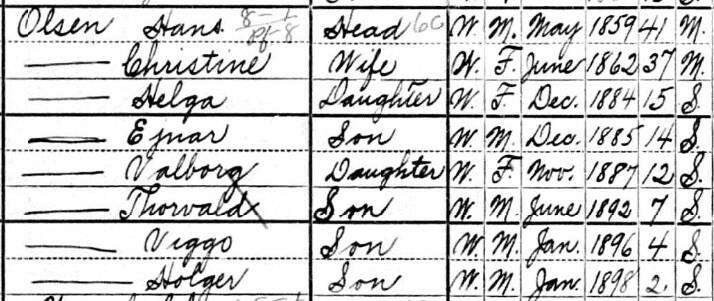 Olsen Hans Head W. M. May 1859 41 M.
—— Christine Wife W. F. June 1862 37 M.
—— Helga Daughter W. F. Dec. 1884 15 S.
—— Ejnar Son W. M. Dec. 1885 14 S.
—— Valborg Daughter W. F. Nov. 1887 12 S.
—— Thorvald Son W. M. June 1892 7 S.
—— Viggo Son W. M. Jan. 1896 4 S.
—— Holger Son W. M. Jan. 1898 2. S.